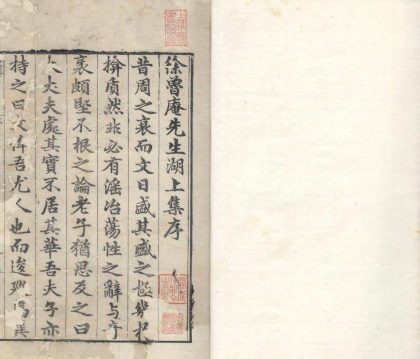 徐魯庵先生湖上集序
昔周之衰而文日盛其盛之極幾於
揜質然非必有淫冶蕩性之辭与奇
衺頗堅不根之論老子猶思反之曰
大丈夫處其實不居其華吾夫子亦
持之曰文莫吾尤人也而逡